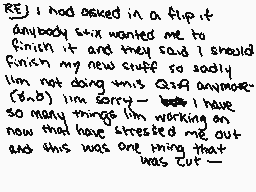 RE) I had asked in a flip if
anybody stix wanted me to
finish it and they said I should
finish my new stuff so sadly
I'm not doing this Q&A anymore-
(ö^ö) I'm sorry- I have
so many things I'm working on
now that have stressed me out
and this was one thing that
was cut -